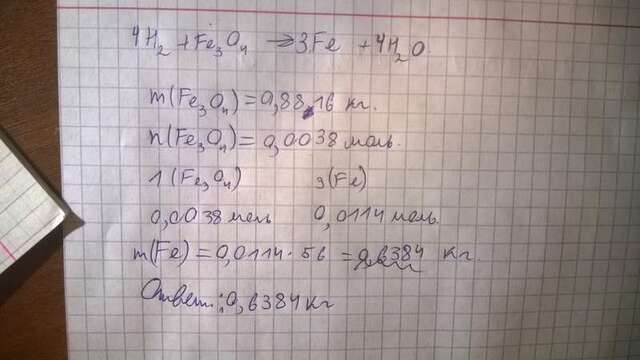 4H₂ + Fe₃O₄ → 3Fe + 4H₂O
m(Fe₃O₄) = 0,8816 кг.
n(Fe₃O₄) = 0,0038 моль.
1(Fe₃O₄) 3(Fe)
0,0038 моль 0,0114 моль.
m(Fe) = 0,0114 · 56 = 0,6384 кг.
Ответ: 0,6384 кг